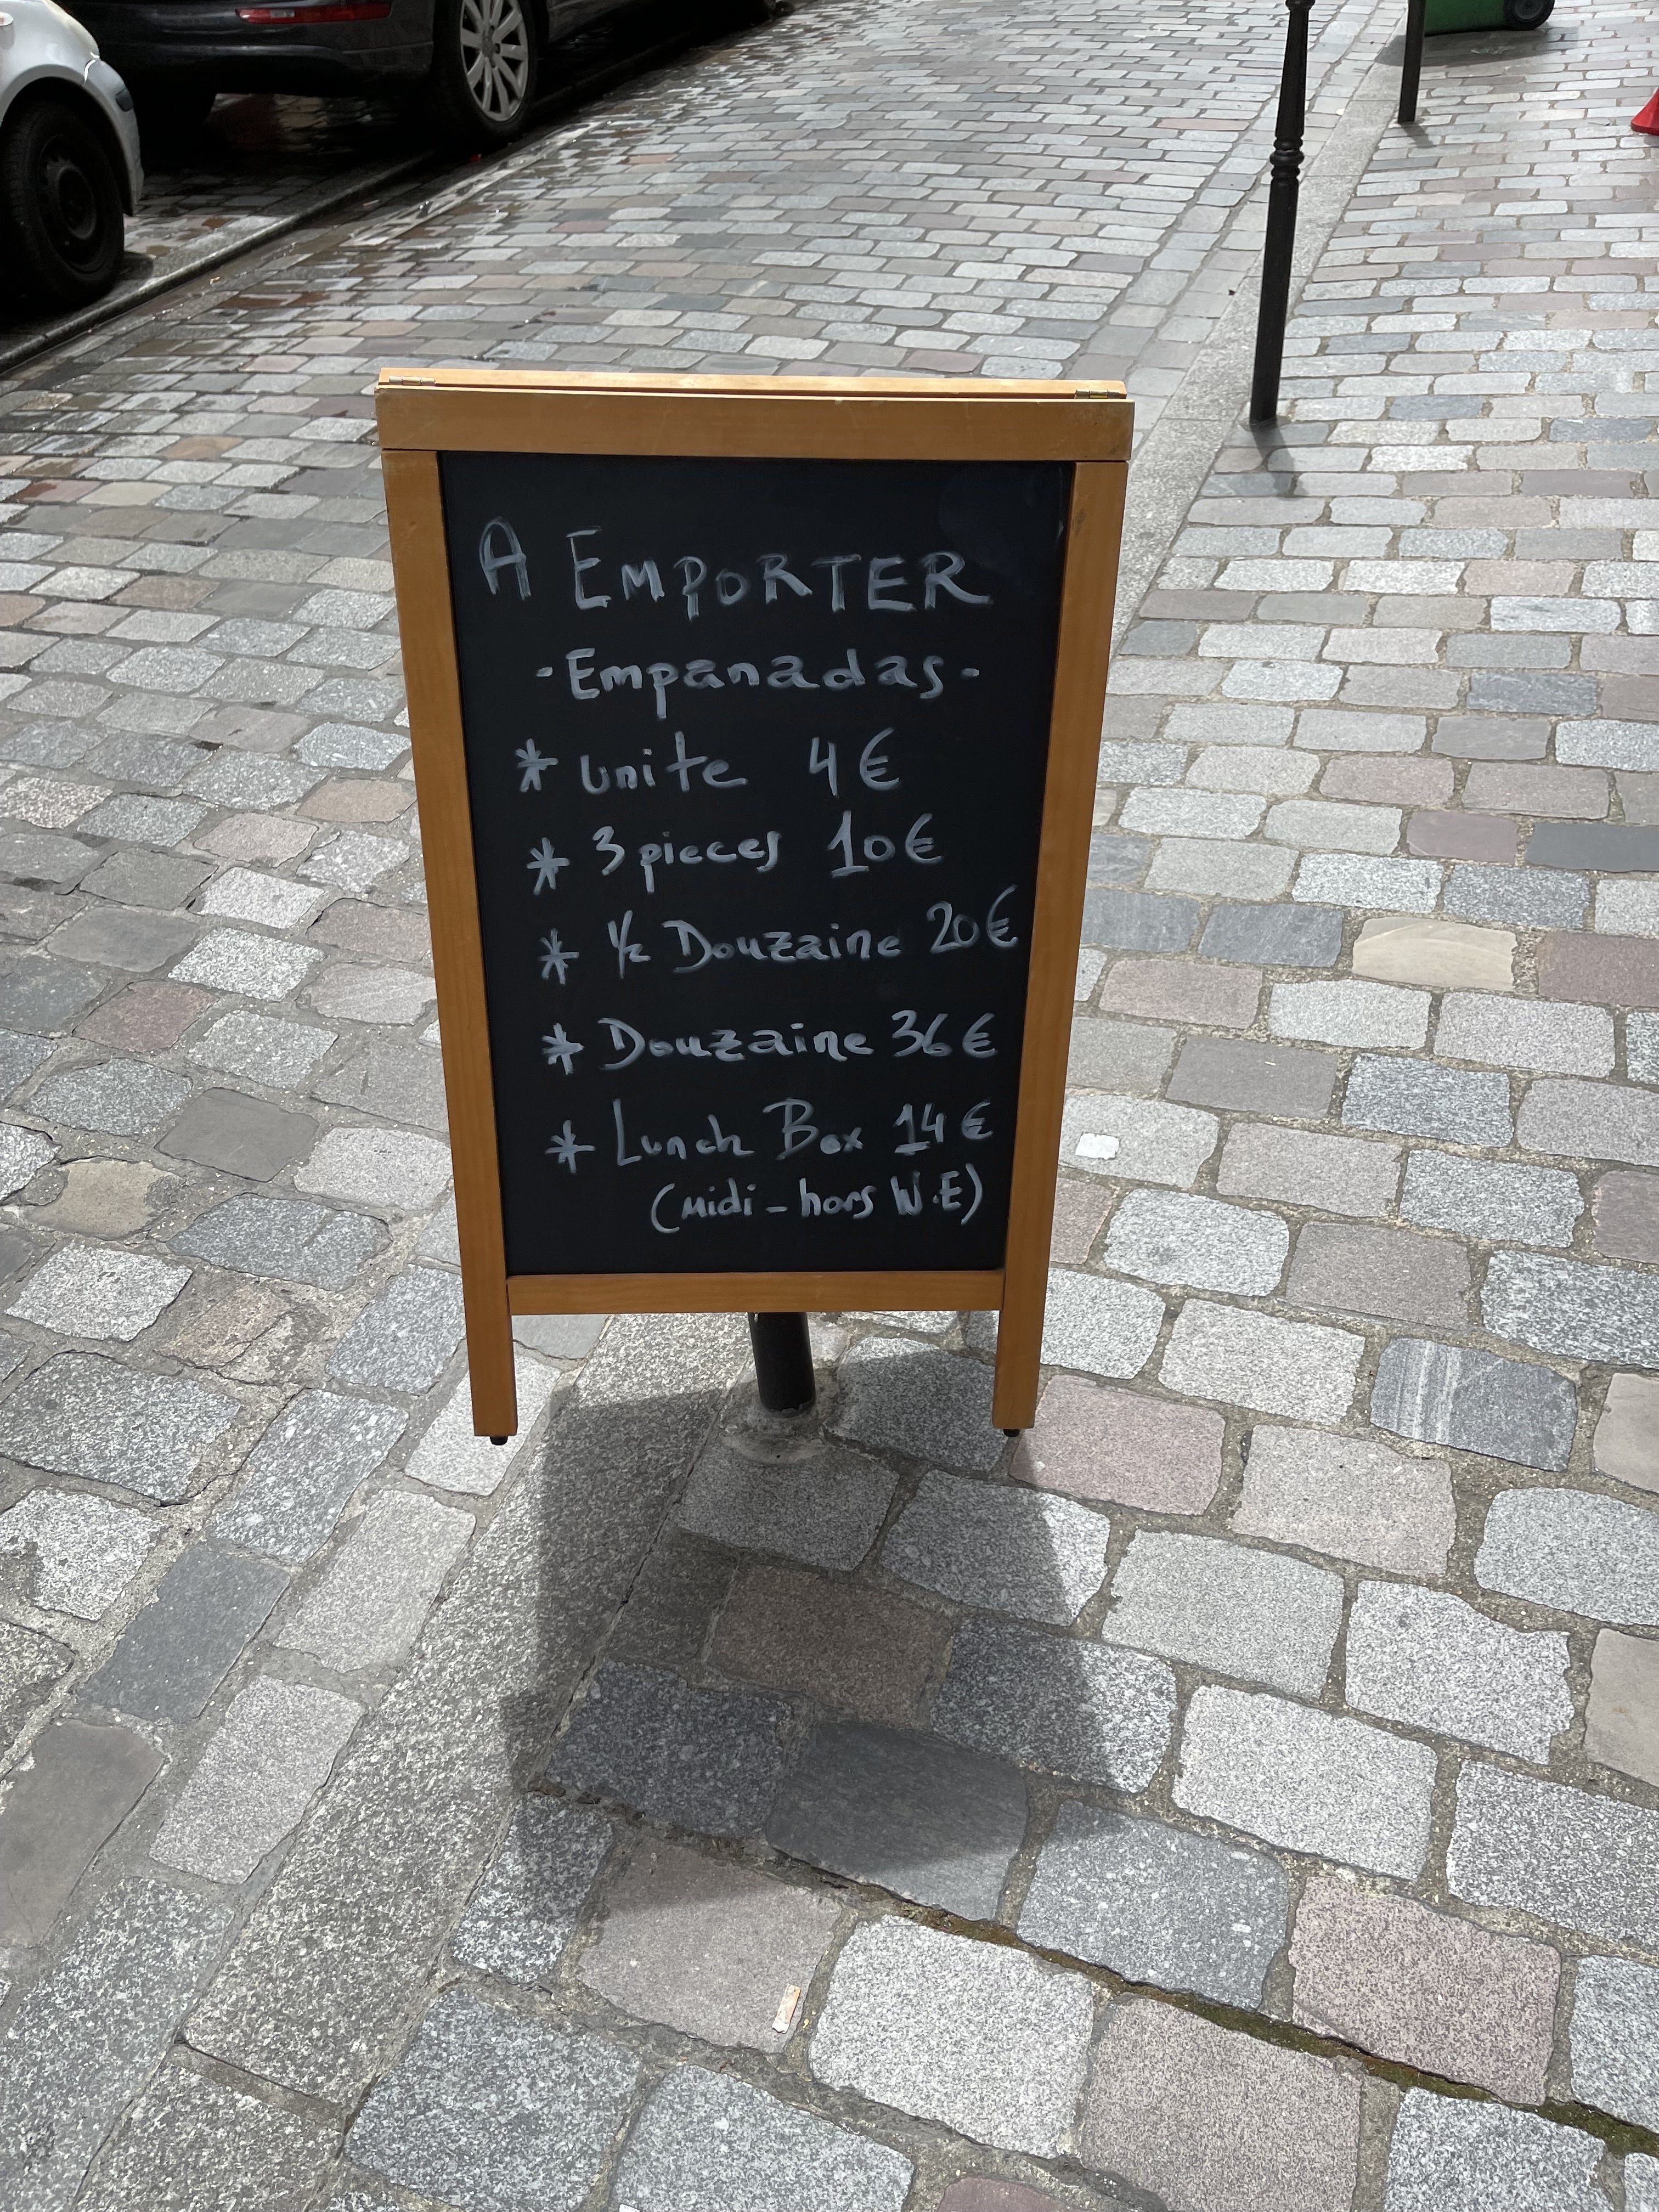 A EMPORTER
- Empanadas -
* unite 4€
* 3 pieces 10€
* 1/2 Douzaine 20€
* Douzaine 36€
* Lunch Box 14€
(midi - hors W.E)